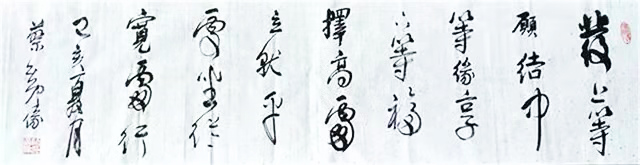 發上等
願結中
等緣享
下等福
擇高處
立就平
處坐從
寬處行
己亥夏月
蔡